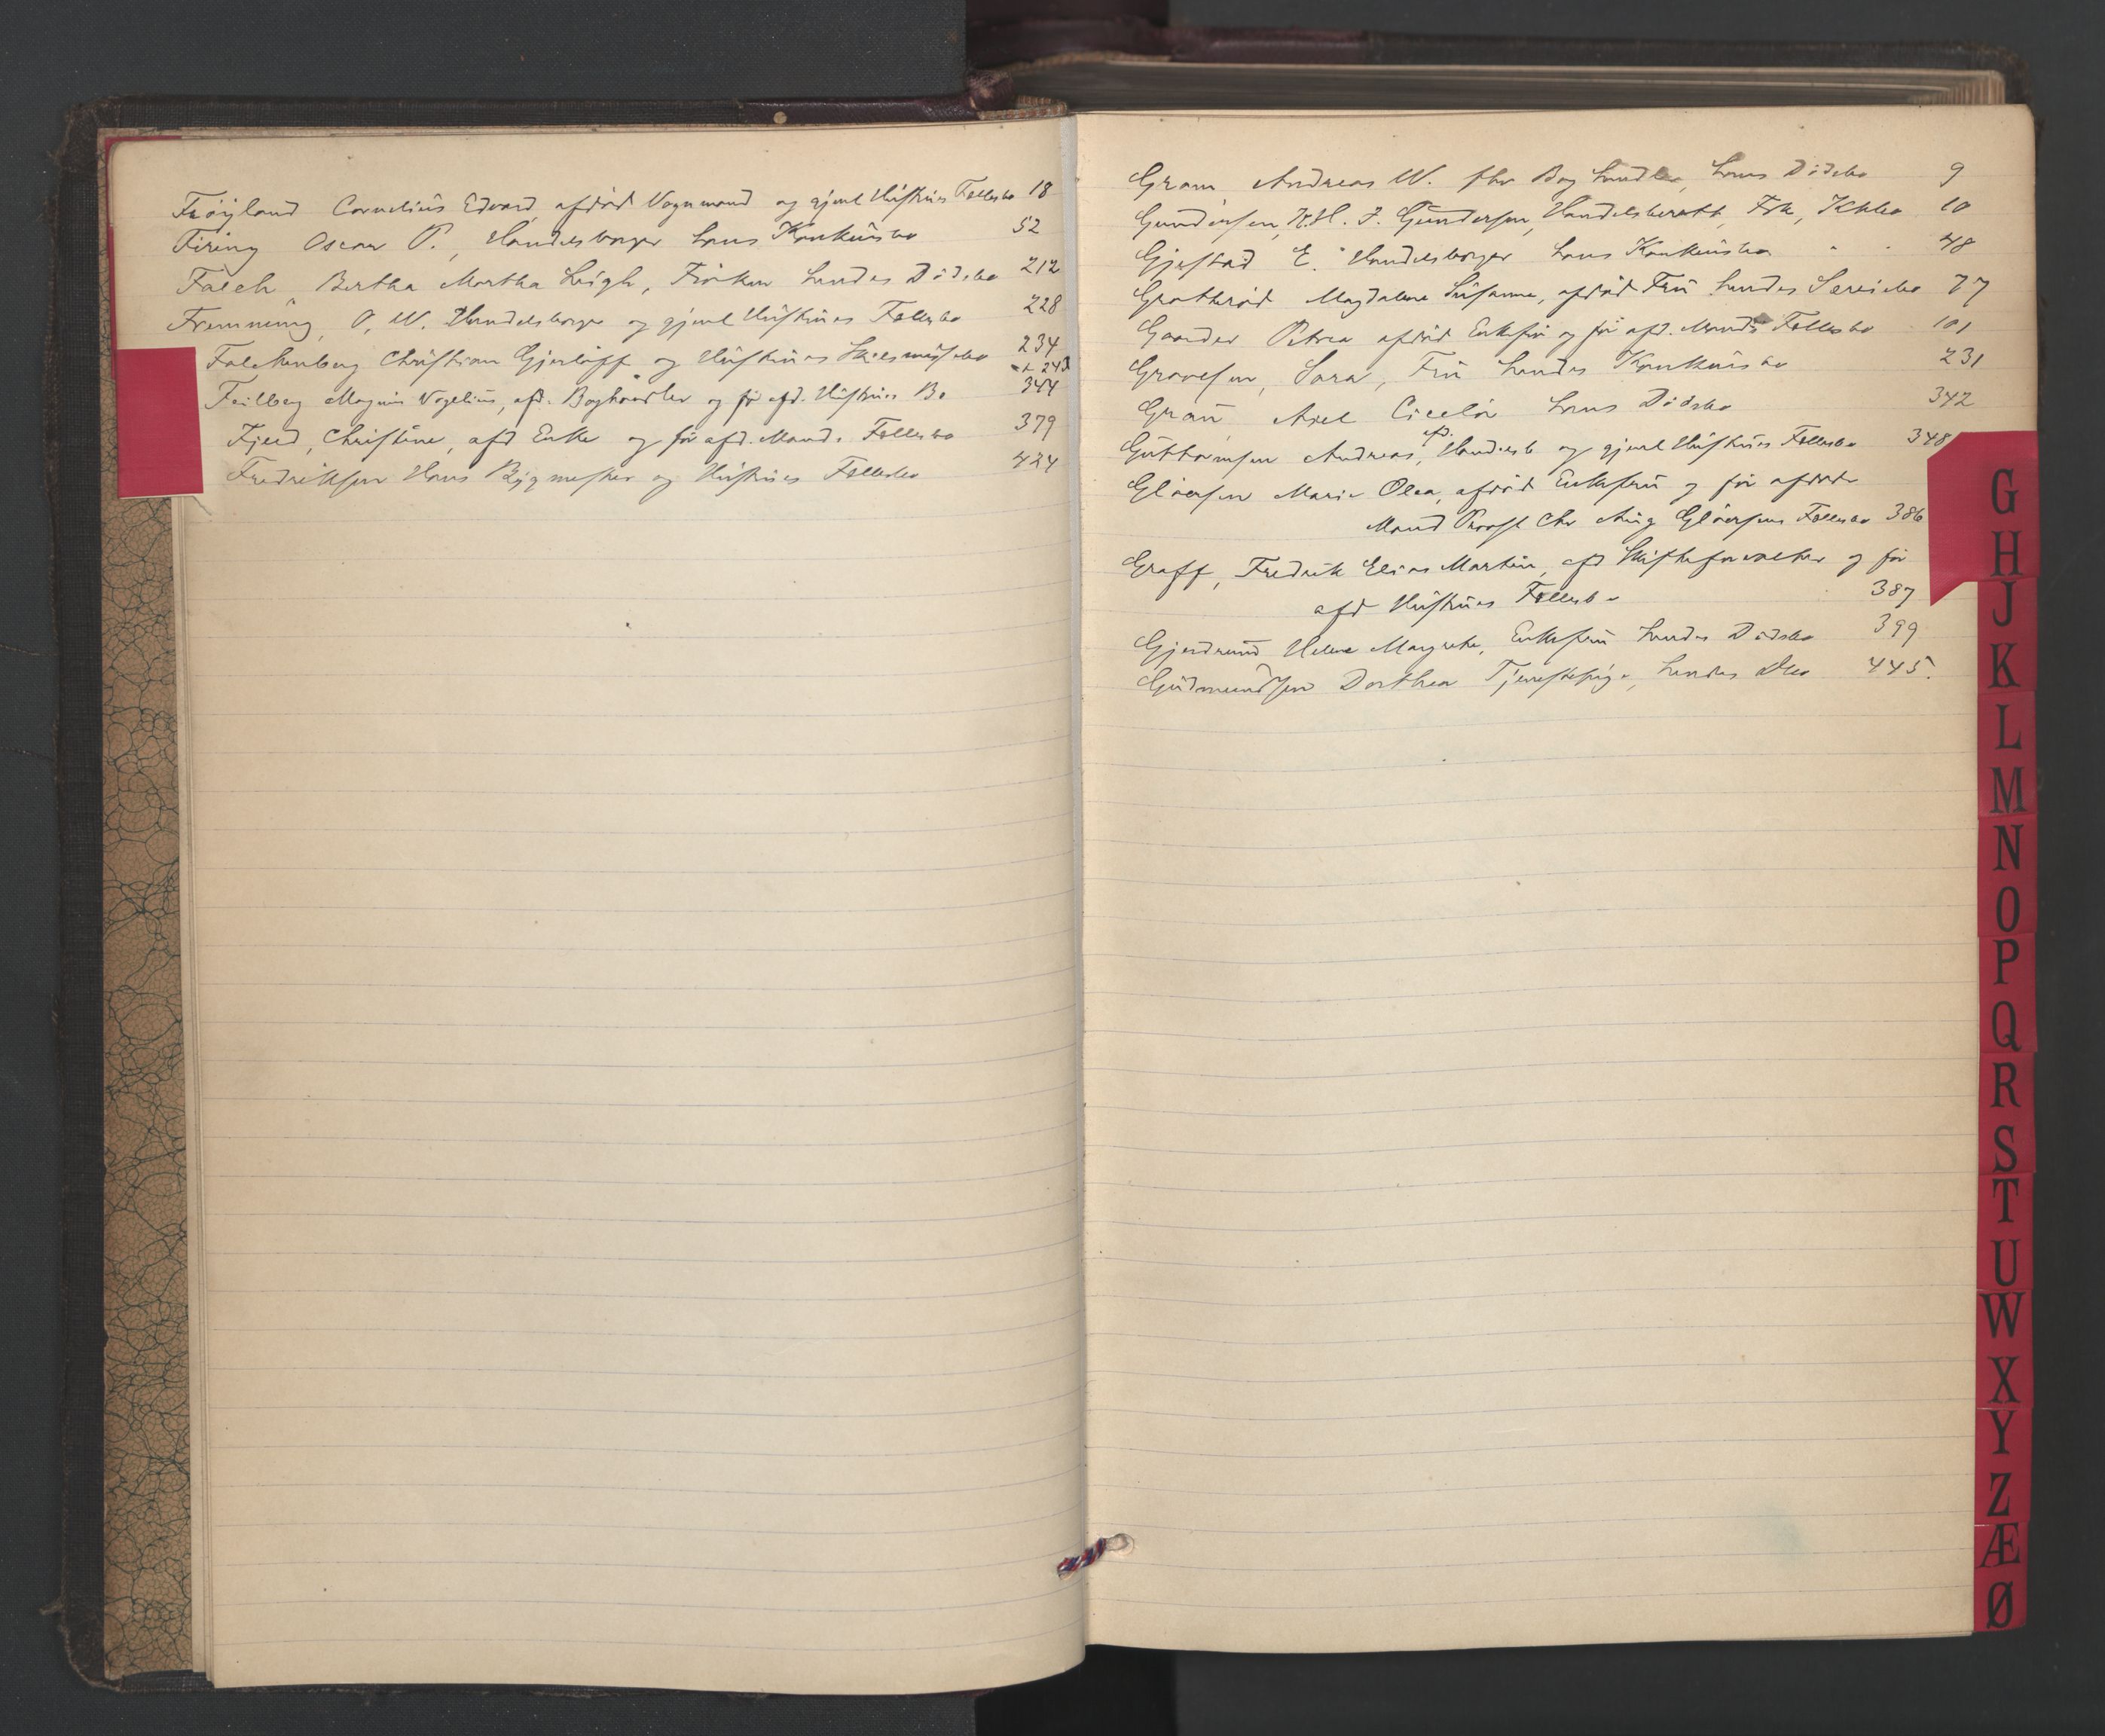 Frøyland Cornelius Edvard, afdød Vognmand og gjenl Hustrues Fællesbo 18
Firing Oscar P., Handelsborger hans Konkursbo 52
Falch Bertha Martha Leigh, Frøken hendes Dødsbo 212
Fremming, O. W. Handelsborger og gjenl Hustrues Fællesbo 228
Falchenberg Christian Gjerløff og Hustrues Skilsmissebo 234
243
Feilberg Magnus Vogelius, afd. Boghandler og før afd. Hustrues Bo 344
Fjeld, Christine, afd Enke og før afd. Mands Fællesbo 379
Fredriksen Hans Bygmester og Hustrues Fællesbo 424
Gram Andreas W. fhv Boghandler, hans Dødsbo 9
Gundersen, J. Gundersen, Handelsberett, Frk, Kkbo 10
Gjestad E. Handelsborger hans Konkursbo " " 48
Grotterød Magdalene Susanne, afdød Fru hendes Særeiebo 77
Gaarder Petrea afdød Enkefru og før afd. Mands Fællesbo 101
Gravesen, Sara, Fru hendes Konkursbo 231
Grau Axel hans Dødsbo 342
afd.
Guttormsen Andreas, Handelsb og gjenl Hustrues Fællesbo 348
Gløersen Marie Olea, afdød Enkefru og før afdøde
Mand Provst Chr Aug Gløersens Fællesbo 386
Graff, Fredrik Elias Martin, afd Skifteforvalter og før
afd Hustrues Fællesbo 387
Gjerdrum Helene Margrethe, Enkefru hendes Dødsbo 399
Gudmundsen Dorthea Tjenestepige, hendes Dbo 445.
G
H
J
K
L
M
N
O
P
Q
R
S
T
U
W
X
Y
Z
Æ
Ø